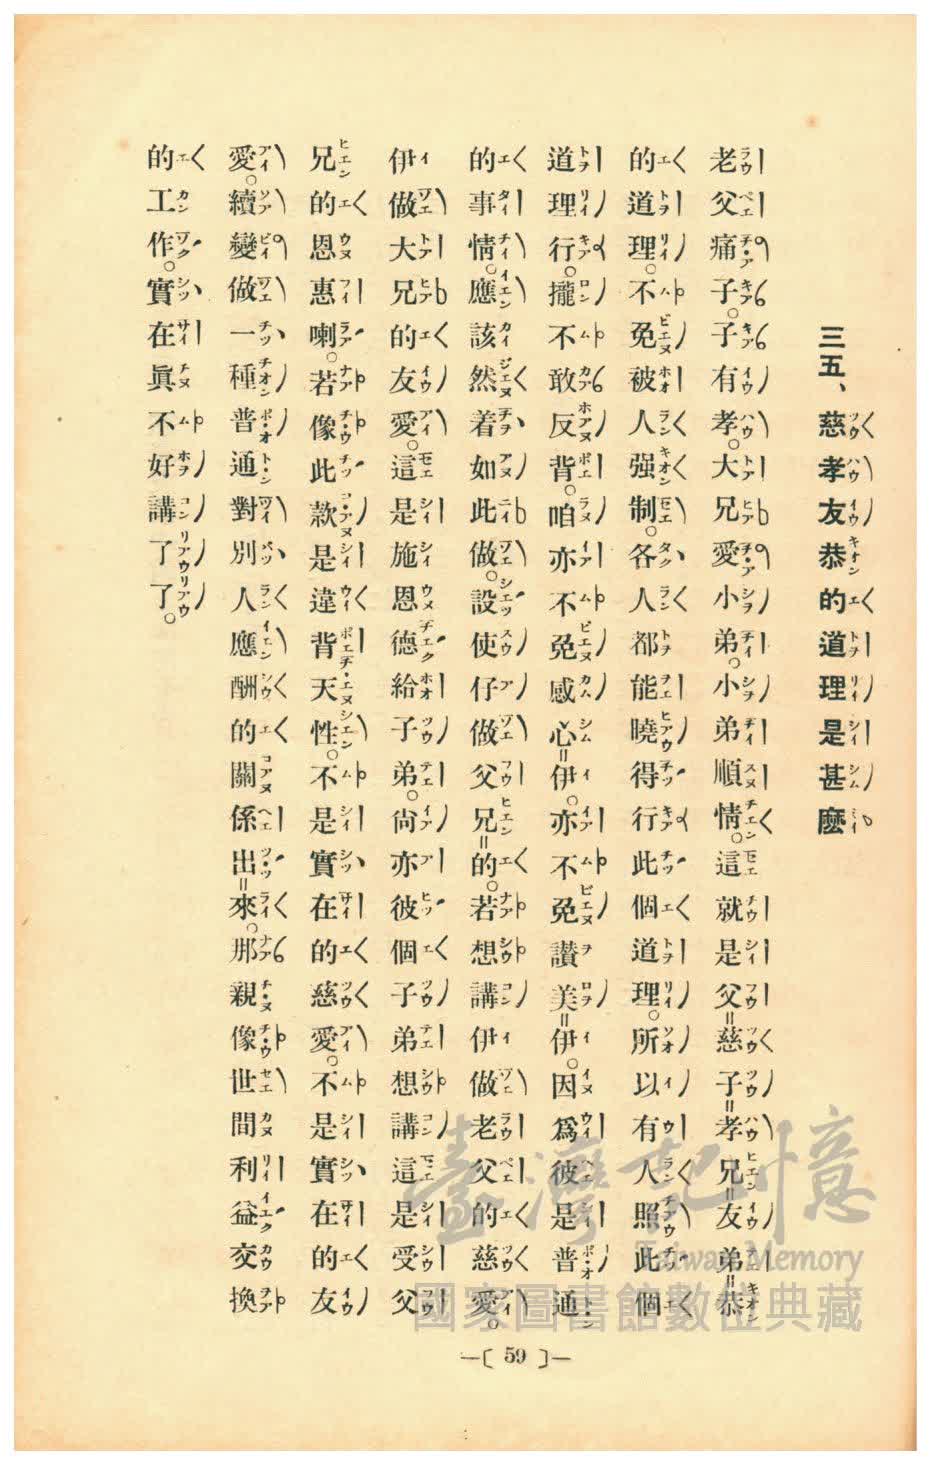 三五、慈孝友恭的道理是甚麼
老父痛子。子有孝。大兄愛小弟。小弟順情。這就是父慈子孝兄友弟恭
的道理。不免被人强制。各人都能曉得行此個道理。所以有人照此個
道理行。攏不敢反背。咱亦不免感心伊。亦不免讚美伊。因爲彼是普通
的事情。應該然着如此做。設使仔做父兄的。若想講伊做老父的慈愛。
伊做大兄的友愛。這是施恩德給子弟。尙亦彼個子弟想講這是受父
兄的恩惠喇。若像此款是違背天性。不是實在的慈愛。不是實在的友
愛。續變做一種普通對別人應酬的關係出來。那親像世間利益交換
的工作。實在眞不好講了了。
臺灣記憶
Taiwan Memory
國家圖書館數位典藏
—〔 59 〕—